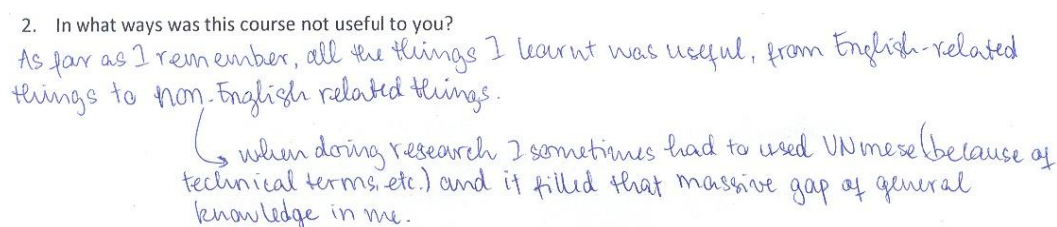 2. In what ways was this course not useful to you?
As far as I remember, all the things I learnt was useful, from English-related
things to non-English related things.
when doing research I sometimes had to used VNmese (because of
technical terms, etc.) and it filled that massive gap of general
knowledge in me.